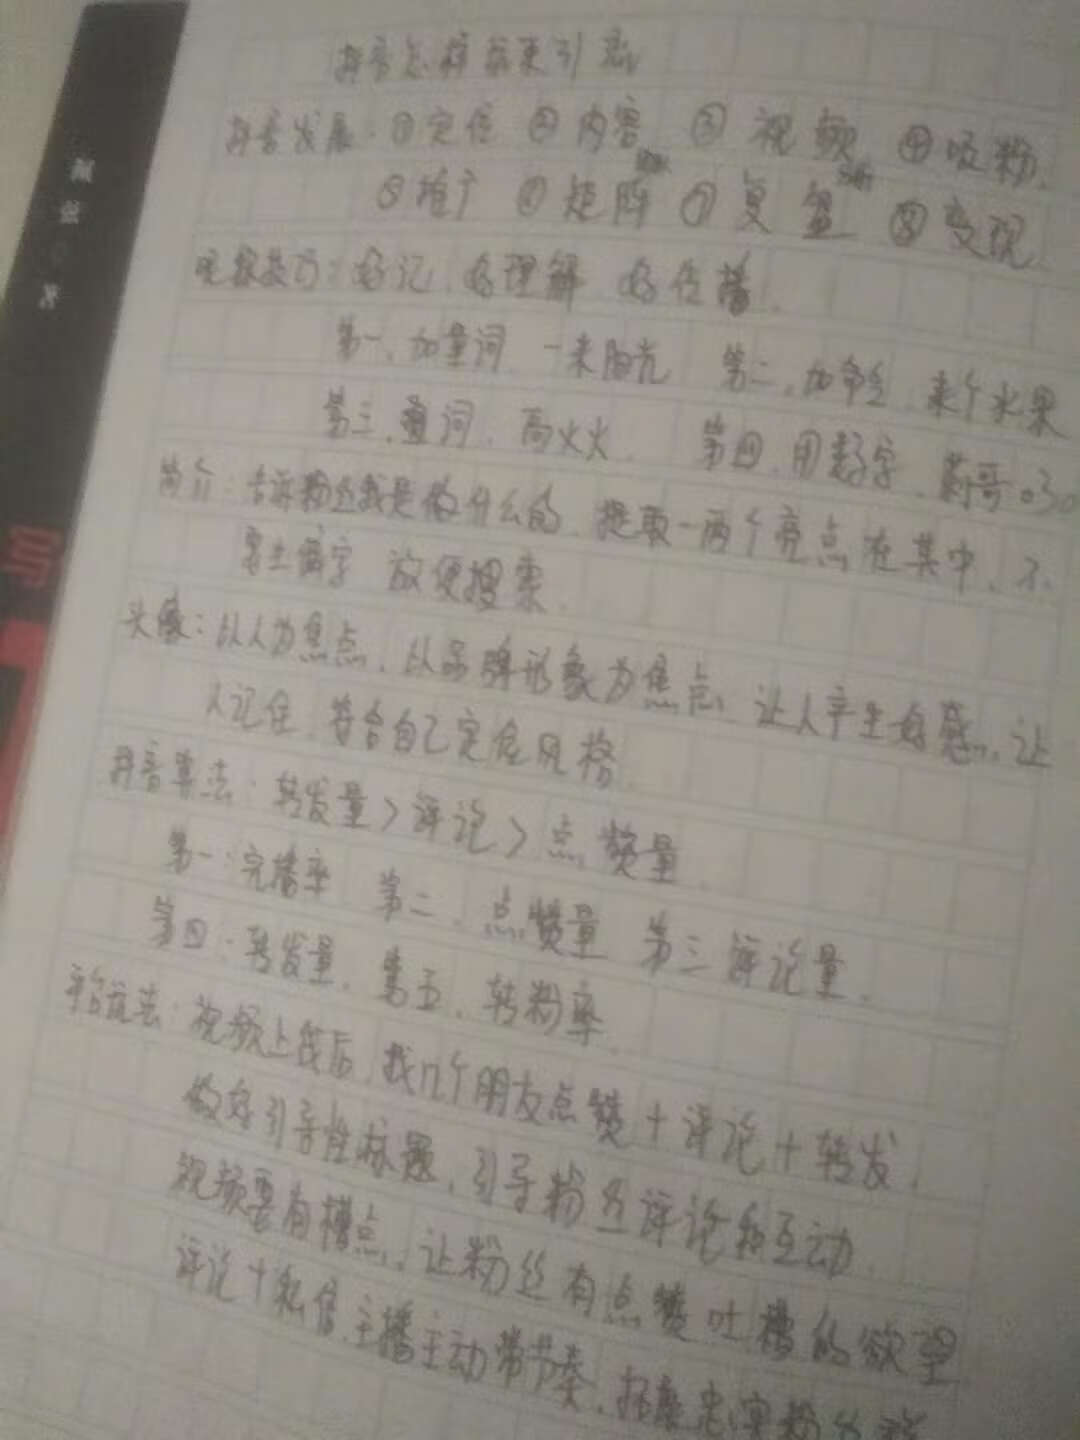 抖音怎样 引流
抖音发展：①定位 ②内容 ③视频 ④吸粉、
⑤推广 ⑥矩阵 ⑦复盘 ⑧变现、
昵称技巧：好记、好理解 好传播、
第一、加量词、一束阳光 第二、加命令、来个水果
第三、叠词、高火火、 第四、用数字、 哥030
简介：告诉粉丝我是做什么的、提取一两个亮点在其中、不
要生僻字 放便搜索、
头像：以人为焦点、以品牌形象为焦点、让人产生好感、让
人记住、符合自己定位风格、
抖音算法：转发量>评论>点赞量、
第一：完播率 第二、点赞量 第三评论量、
第四：转发量、第五、转粉率、
平台玩法：视频上线后、找几个朋友点赞+评论+转发、
做好引导性标题、引导粉丝评论和互动、
视频要有槽点、让粉丝有点赞吐槽的欲望
评论+私信、主播主动带节奏、 忠实粉丝
写
著